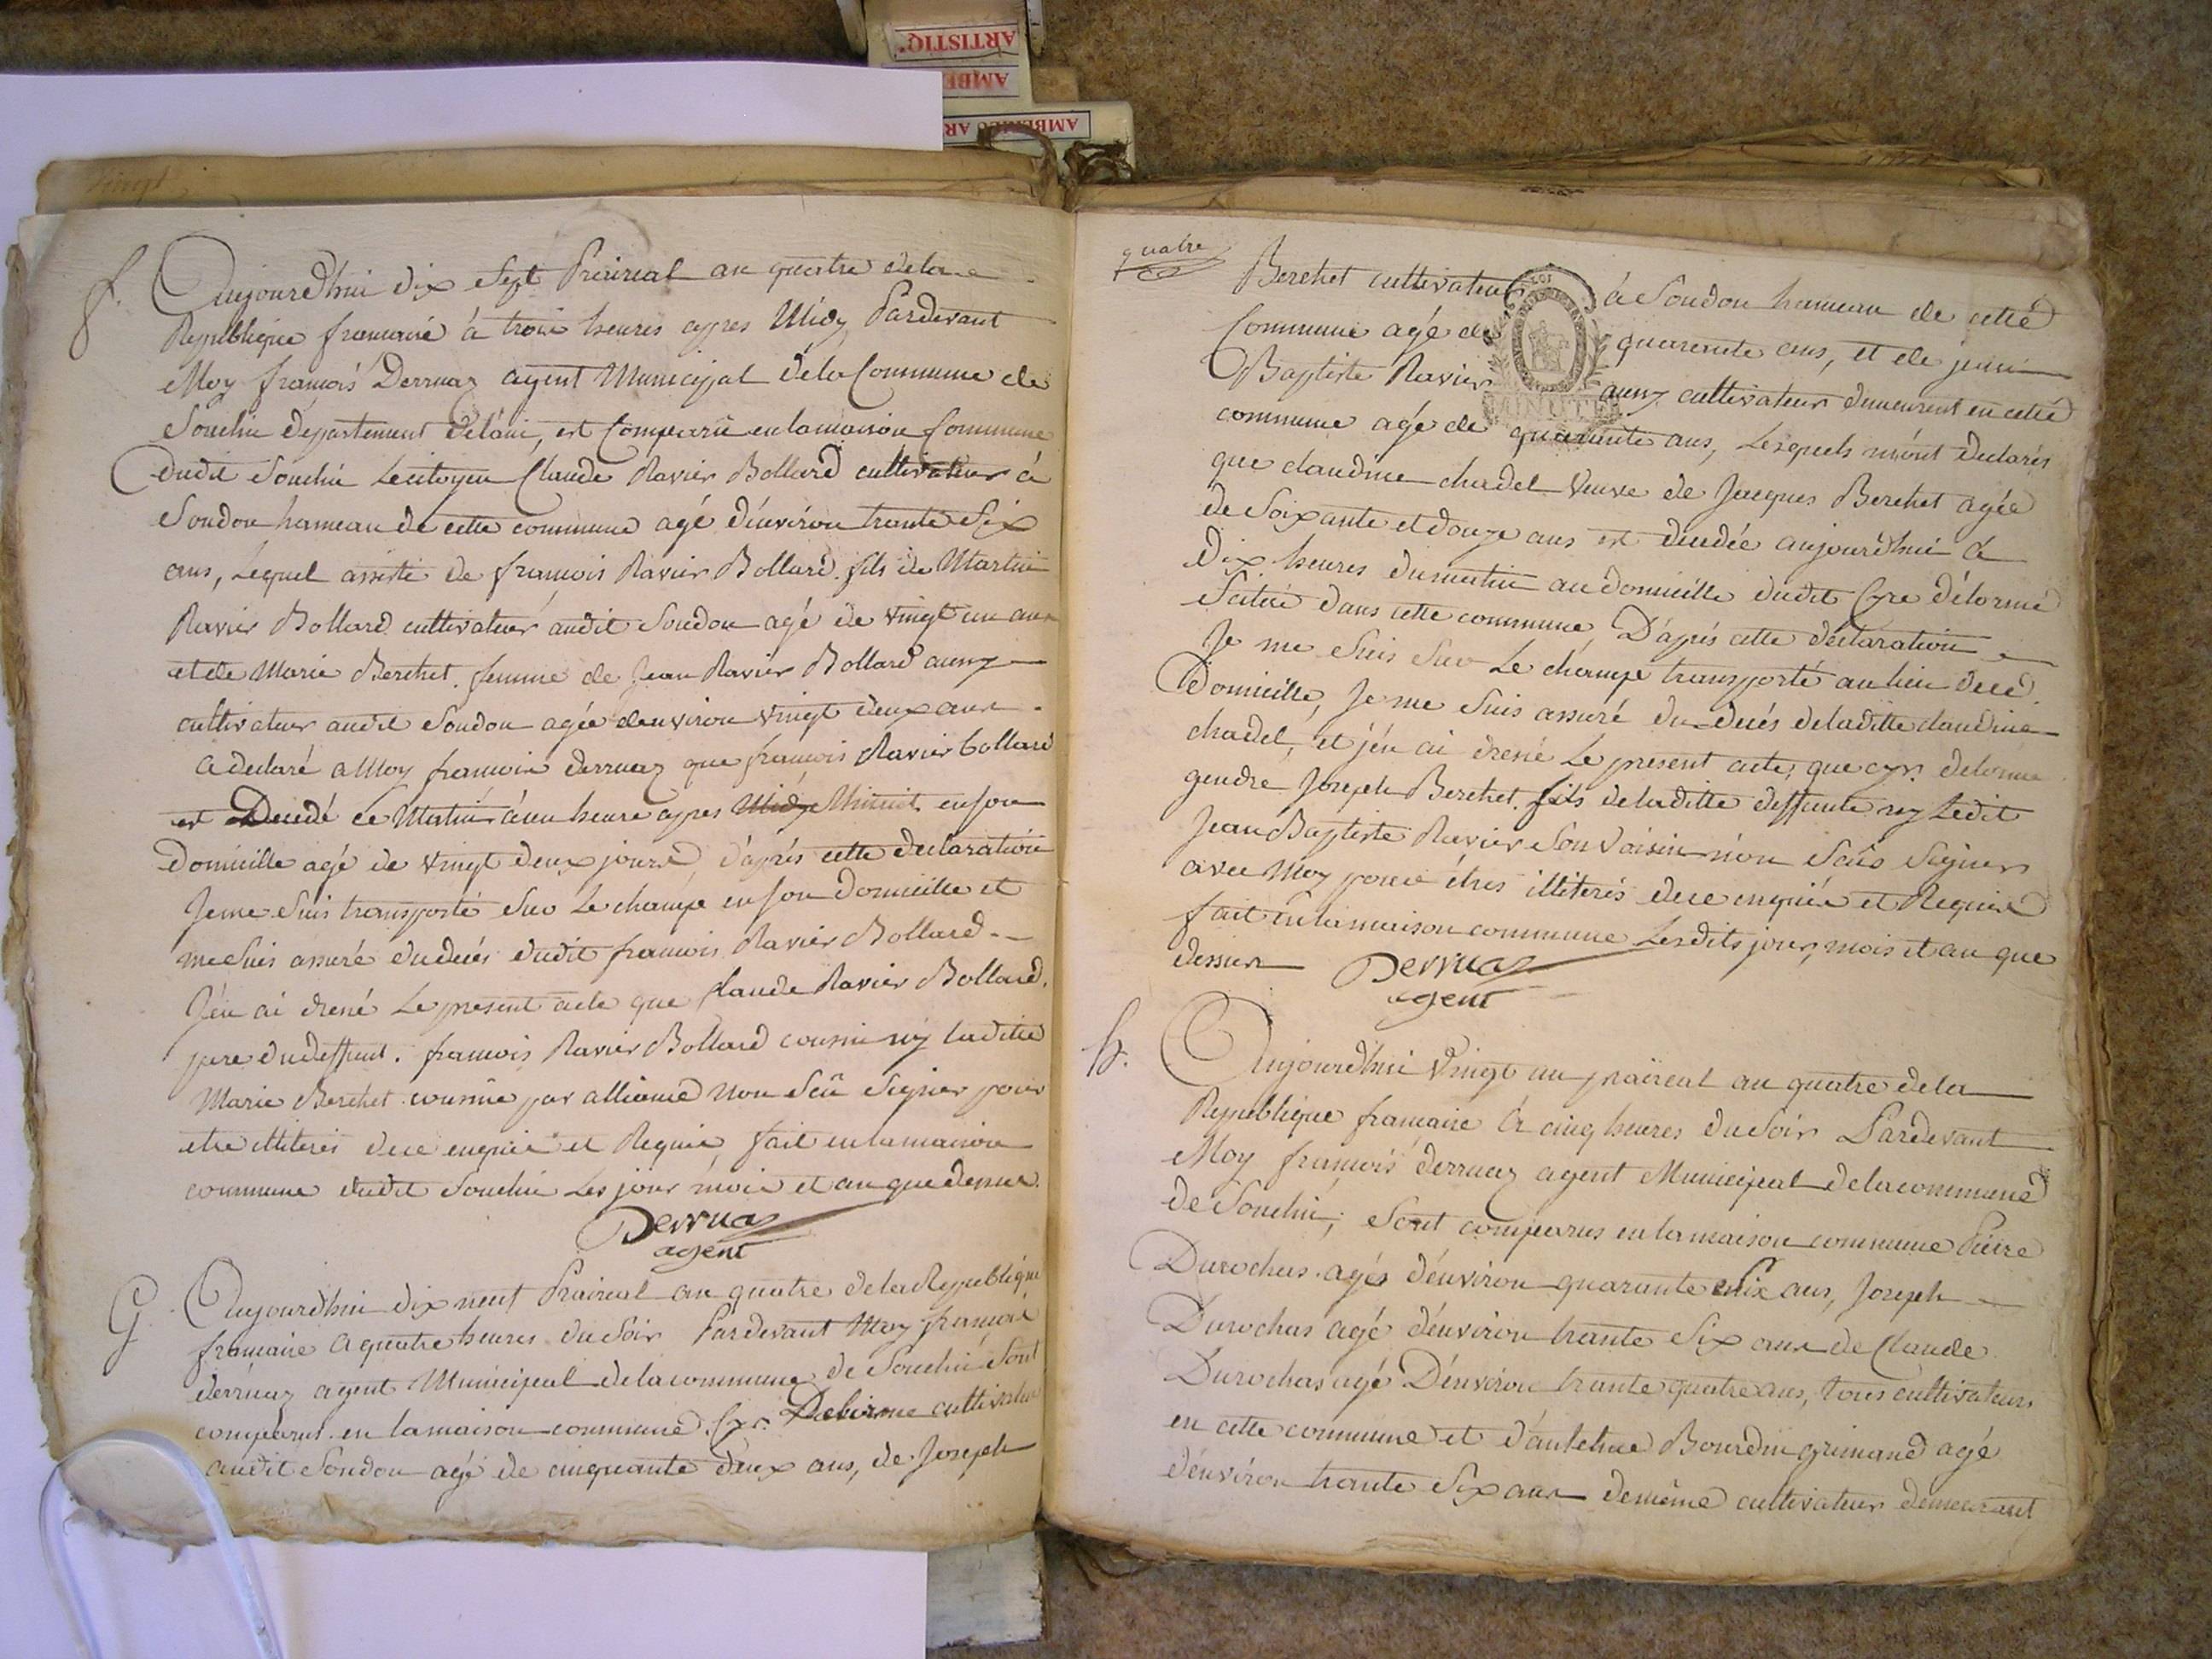 ARTISTIQ
AMBE
AMBERIEU AR
vingt
f. Aujourdhui dix Sept Prairial an quatre dela
Republique francaise à trois heures apres Midy Pardevant
Moy françois Derruaz agent Municipal dela Commune de
Souclin departement delain, est Comparû enlamaison Commune
dudit Souclin Lecitoyen Claude Ravier Bollard cultivateur à
Soudon hameau de cette commune agé d'environ trante Six
ans, Lequel assisté de françois Ravier Bollard fils de Martin
Ravier Bollard cultivateur audit Soudon agé de vingt un ans
et de Marie Berchet femme de Jean Ravier Bollard aussy
cultivateur audit Soudon agée denviron vingt deux ans
a declaré a Moy françois derruaz que françois Ravier bollard
est Decedé ce Matin à une heure apres Midy Minuit enson
Domicille agé de vingt deux jours, d'après cette declaration
Jeme Suis transporté Sur Le champ en son Domicille et
meSuis assuré dudecés dudit francois Ravier Bollard
J'en ai dressé Le présent acte que Claude Ravier Bollard
pere dudeffunt. francois Ravier Bollard cousin ny laditte
Marie Berchet cousine par alliance non Sçû Signer pour
etre illiterés dece enquis et Requis, fait enlamaison
commune dudit Souclin Les jour mois et an que dessus.
Derruaz
agent
G. Aujourdhui dix neuf Prairial an quatre delaRepublique
francaise a quatre heures du Soir Pardevant Moy françois
derruaz agent Municipal delacommune de Souclin Sont
comparus en lamaison commune Cyr Delorme cultivateur
audit Soudon agé de cinquante deux ans, de Joseph
quatre
Berchet cultivateur à Soudon hameau de cette
LOI
Commune agé de quarente ans, et de jean
Baptiste Ravier aussy cultivateur demeurent en cette
MINUTE
commune agé de quarente ans, Lesquels m'ont declarés
que claudine chadel Veuve de Jacques Berchet agée
de Soixante et douze ans est decedée aujourdhui à
dix heures dumatin au domicille dudit Cyre delorme
Scitué dans cette commune, D'après cette déclaration
Je me Suis Sur Le champ transporté au lieu dece
Domicille, Je me Suis assuré du decés deladitte claudine
chadel, et j'en ai dressé Le present acte, que cyr delorme
gendre Joseph Berchet fils deladitte deffunte ny Ledit
Jean Baptiste Ravier Son Voisin n'on Scûs Signer
avec Moy pour étres illiterés dece enquis et Requis
fait enlamaison commune Lesdits jour, mois et an que
dessus
Derruaz
agent
h. Aujourdhui Vingt un prairial an quatre dela
Republique francaise à cinq heures du Soir Pardevant
Moy françois derruaz agent Municipal delacommune
de Souclin, Sont comparus en lamaison commune Pierre
Durochas agés d'environ quarante six ans, Joseph
Durochas agé d'environ trante Six ans de Claude
Durochas agé D'environ trante quatre ans, tous cultivateurs
en cette commune et d'anthelme Bourdin grimand agé
d'environ trante Six ans demême cultivateur demeurant